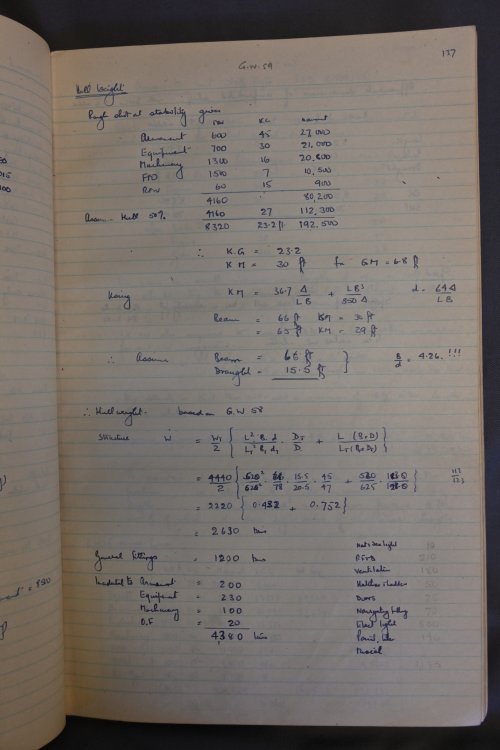 137
G.W. 59
Hull Weight.
Rough shot at stability gives
KG moment
Armament 600 45 27,000
Equipment 700 30 21,000
Machinery 1300 16 20,800
FFO 1500 7 10,500
RFW 60 15 900
4160 80,200
Assume Hull 50% 4160 27 112,300
8320 23.2 ft. 192,500
∴ K.G = 23.2
K M = 30 ft for GM = 6.8 ft
Using KM = 36.7 Δ/LB + LB³/850 Δ d = 64Δ/LB
Beam = 66 ft KM = 30 ft
= 65 ft KM = 29 ft
∴ Assume Beam = 66 ft
Draught = 15.5 ft } B/d = 4.26. !!!
∴ Hull weight. based on G.W 58
Structure W = W₁/2 { L² B. d / L₁² B₁ d₁ . D₁/D + L (B+D) / L₁ (B₁+D₁) }
= 4440/2 { . 15.5/20.5 . 45/47 + }
= 2220 { 0.432 + 0.752 }
= 2630 tons
General fittings = 1200 tons
Armament = 200
Equipment = 230
Machinery = 100
O.F = 20
4380 tons
RFSB
Ventilation
Hatches & ladders
Doors
Paint,